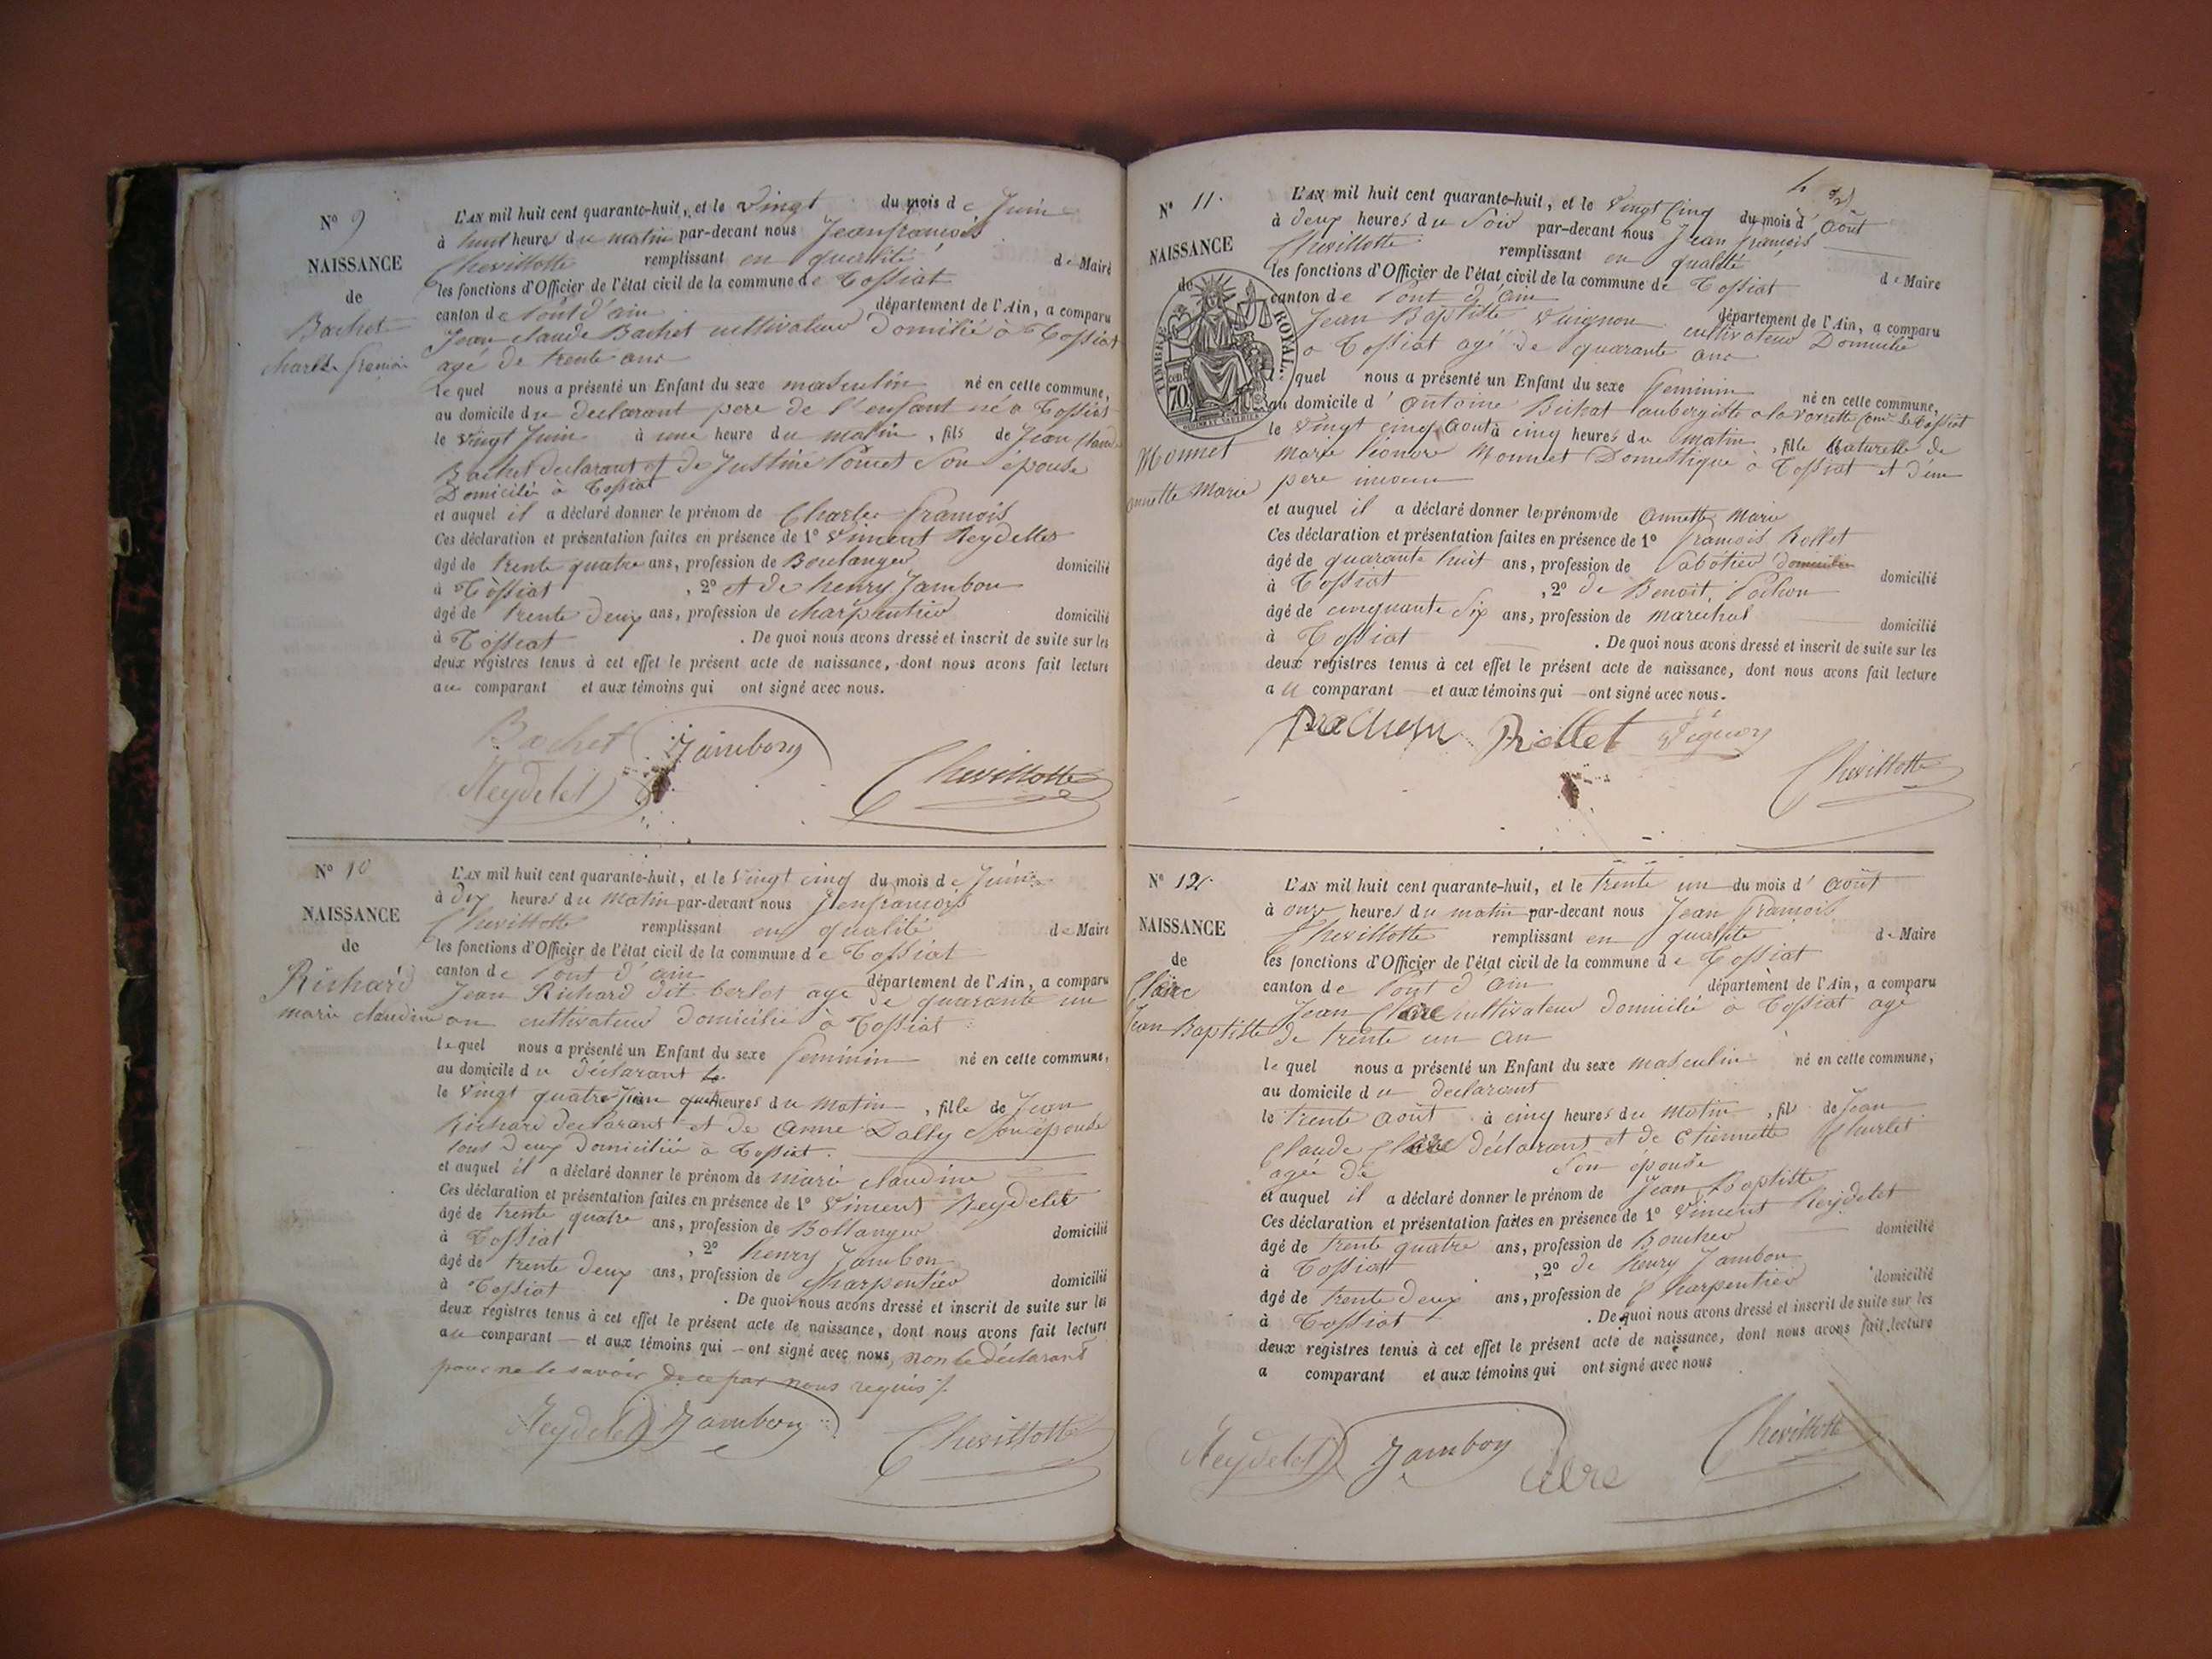 N° 9
NAISSANCE
de
Bachet
Charles françois
L'AN mil huit cent quarante-huit, et le Vingt du mois de Juin
à huit heures du matin par-devant nous Jeanfrançois
Chevillotte remplissant en qualité de Maire
les fonctions d'Officier de l'état civil de la commune de Tossiat
canton de Pont d'ain département de l'Ain, a comparu
Jean claude Bachet cultivateur Domilié à Tossiat
agé de trente ans
Lequel nous a présenté un Enfant du sexe masculin né en cette commune,
au domicile du declarant pere de l'enfant né a Tossiat
le Vingt Juin à une heure du matin, fils de Jean Claude
Bachet declarant et de Justine Poncet Son épouse
Domiciliés à Tossiat
et auquel il a déclaré donner le prénom de Charles françois
Ces déclaration et présentation faites en présence de 1° Vincent Reydellet
âgé de trente quatre ans, profession de Boulanger domicilié
à Tossiat , 2° et de henry Jambon
âgé de trente deux ans, profession de charpentier domicilié
à Tossiat . De quoi nous avons dressé et inscrit de suite sur les
deux registres tenus à cet effet le présent acte de naissance, dont nous avons fait lecture
au comparant et aux témoins qui ont signé avec nous.
Bachet Jambon
Reydelet Chevillotte
N° 10
NAISSANCE
de
Richard
marie claudine
L'AN mil huit cent quarante-huit, et le Vingt cinq du mois de Juin
à dix heures du matin par-devant nous Jenfrançois
Chevillotte remplissant en qualité de Maire
les fonctions d'Officier de l'état civil de la commune de Tossiat
canton de Pont d'ain département de l'Ain, a comparu
Jean Richard dit berlot age de quarante un
an cultivateur domicilié à Tossiat
lequel nous a présenté un Enfant du sexe feminin né en cette commune,
au domicile du declarant
le Vingt quatre Juin heures du matin, fille de Jean
Richard declarant et de Anne Dally Son épouse
tous deux domiciliés à Tossiat.
et auquel il a déclaré donner le prénom de marie claudine
Ces déclaration et présentation faites en présence de 1° Vincent Reydelet
âgé de trente quatre ans, profession de Bollanger domicilié
à Tossiat , 2° henry Jambon
âgé de trente deux ans, profession de charpentier domicilié
à Tossiat . De quoi nous avons dressé et inscrit de suite sur les
deux registres tenus à cet effet le présent acte de naissance, dont nous avons fait lecture
au comparant et aux témoins qui ont signé avec nous, non le déclarant
pour ne le savoir de ce par nous requis /.
Reydelet Jambon Chevillotte
N° 11.
NAISSANCE
de
TIMBRE ROYAL.
70
Monnet
annette Marie
L'AN mil huit cent quarante-huit, et le Vingt Cinq du mois d' Août
à deux heures du Soir par-devant nous Jean françois
Chevillotte remplissant en qualité de Maire
les fonctions d'Officier de l'état civil de la commune de Tossiat
canton de Pont d'ain département de l'Ain, a comparu
Jean Baptiste cultivateur Domicilié
a Tossiat agé de quarante ans
lequel nous a présenté un Enfant du sexe feminin né en cette commune,
au domicile d' Antoine Bichat aubergiste a la Vavrette Com de Tossiat
le Vingt cinq Aout à cinq heures du matin, fille Naturelle de
Marie Monnet Domestique à Tossiat et d'un
pere inconnu
et auquel il a déclaré donner les prénoms de Annette Marie
Ces déclaration et présentation faites en présence de 1° françois Rollet
âgé de quarante huit ans, profession de Sabotier domicilié
à Tossiat , 2° de Benoit Pochon
âgé de cinquante Six ans, profession de marechal domicilié
à Tossiat . De quoi nous avons dressé et inscrit de suite sur les
deux registres tenus à cet effet le présent acte de naissance, dont nous avons fait lecture
au comparant et aux témoins qui ont signé avec nous.
Chevillotte
N° 12.
NAISSANCE
de
Claire
Jean Baptiste
L'AN mil huit cent quarante-huit, et le trente un du mois d' Août
à onze heures du matin par-devant nous Jean françois
Chevillotte remplissant en qualité de Maire
les fonctions d'Officier de l'état civil de la commune de Tossiat
canton de Pont d'ain département de l'Ain, a comparu
Jean cultivateur domicilié à Tossiat agé
de trente un an
lequel nous a présenté un Enfant du sexe masculin né en cette commune,
au domicile du declarant
le trente Août à cinq heures du matin, fils de Jean
Claude déclarant et de Etiennette Churlet
agée de Son épouse
et auquel il a déclaré donner le prénom de Jean Baptiste
Ces déclaration et présentation faites en présence de 1° Vincent Reydelet
âgé de trente quatre ans, profession de Boucher domicilié
à Tossiat , 2° de henry Jambon
âgé de trente deux ans, profession de Charpentier domicilié
à Tossiat . De quoi nous avons dressé et inscrit de suite sur les
deux registres tenus à cet effet le présent acte de naissance, dont nous avons fait lecture
a comparant et aux témoins qui ont signé avec nous
Reydelet Jambon Chevillotte